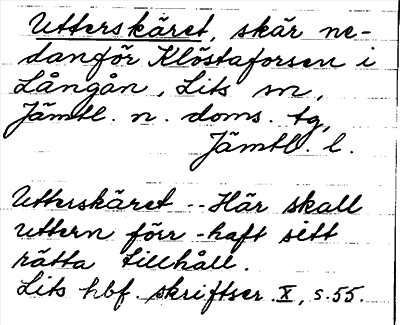 Utterskäret, skär ne-
danför Klöstaforsen i
Långån, Lits sn,
Jämtl. n. doms. tg,
Jämtl. l.
Utterskäret -- Här skall
uttern förr -haft sitt
rätta tillhåll.
Lits hbf. skriftser. X, s. 55.